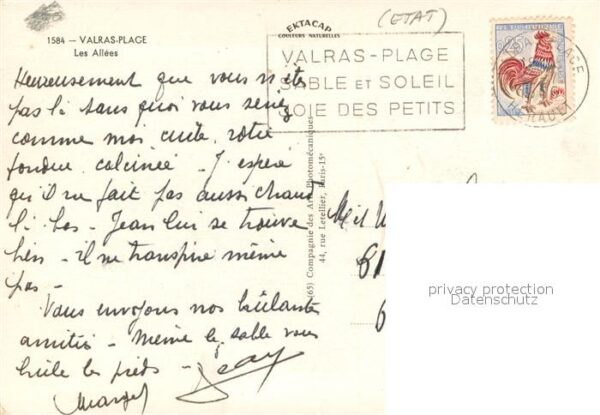 (ETAT)
EKTACAP
COULEURS NATURELLES
1584 — VALRAS-PLAGE
Les Allées
VALRAS-PLAGE
SABLE ET SOLEIL
JOIE DES PETITS
HERAULT
Heureusement que vous n'ete
pas là sans quoi vous seriez
comme moi, cuite, rotie
fondue, calcinée - J'espere
qu'il ne fait pas aussi chaud
là bas - Jean lui se trouve
bien - il ne transpire même
pas -
Vous envoyons nos brûlantes
amitiés - Même le sable vous
brûle les pieds -
Jean
(65) Compagnie des Arts Photomécaniques
44, rue Letellier, Paris-15e
privacy protection
Datenschutz